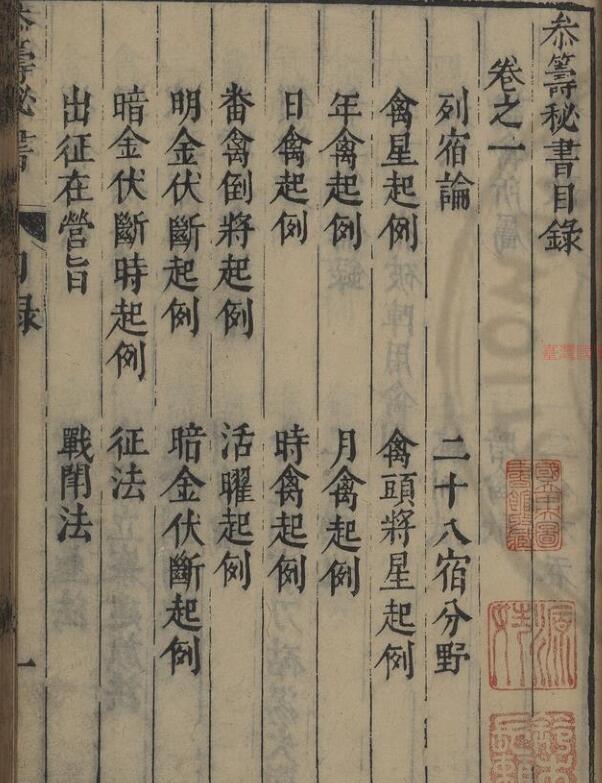 叅籌秘書目錄
卷之一
列宿論　二十八宿分野
禽星起例　禽頭將星起例
年禽起例　月禽起例
日禽起例　時禽起例
畨禽倒將起例　活曜起例
明金伏斷起例　暗金伏斷起例
暗金伏斷時起例　征法
出征在營旨　戰鬥法
叅籌秘書　目錄　一